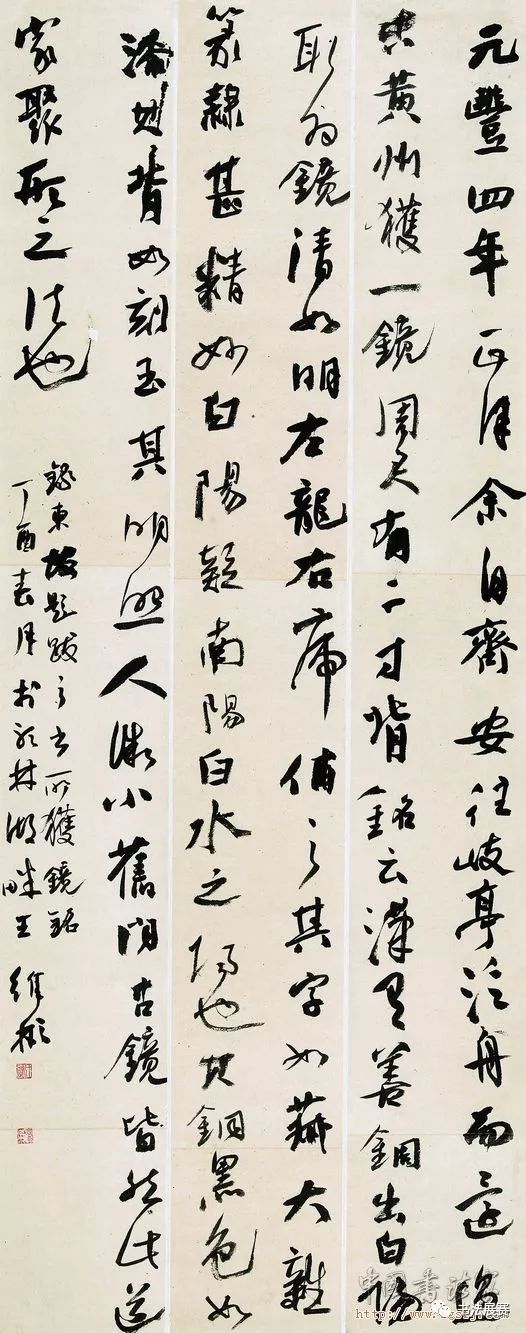 元豐四年正月余自齊安往岐亭泛舟而還過
古黃州獲一鏡周尺有二寸背銘云漢有善銅出白陽
取為鏡清如明左龍右虎俌之其字如菽大雜
篆隸甚精妙白陽疑南陽白水之陽也其銅黑色如
漆其背如刻玉其明照人微小舊聞古鏡皆然此道
家聚形之法也
錄東坡題跋之書所獲鏡銘
丁酉春月於林湖畔王維
书法展赛